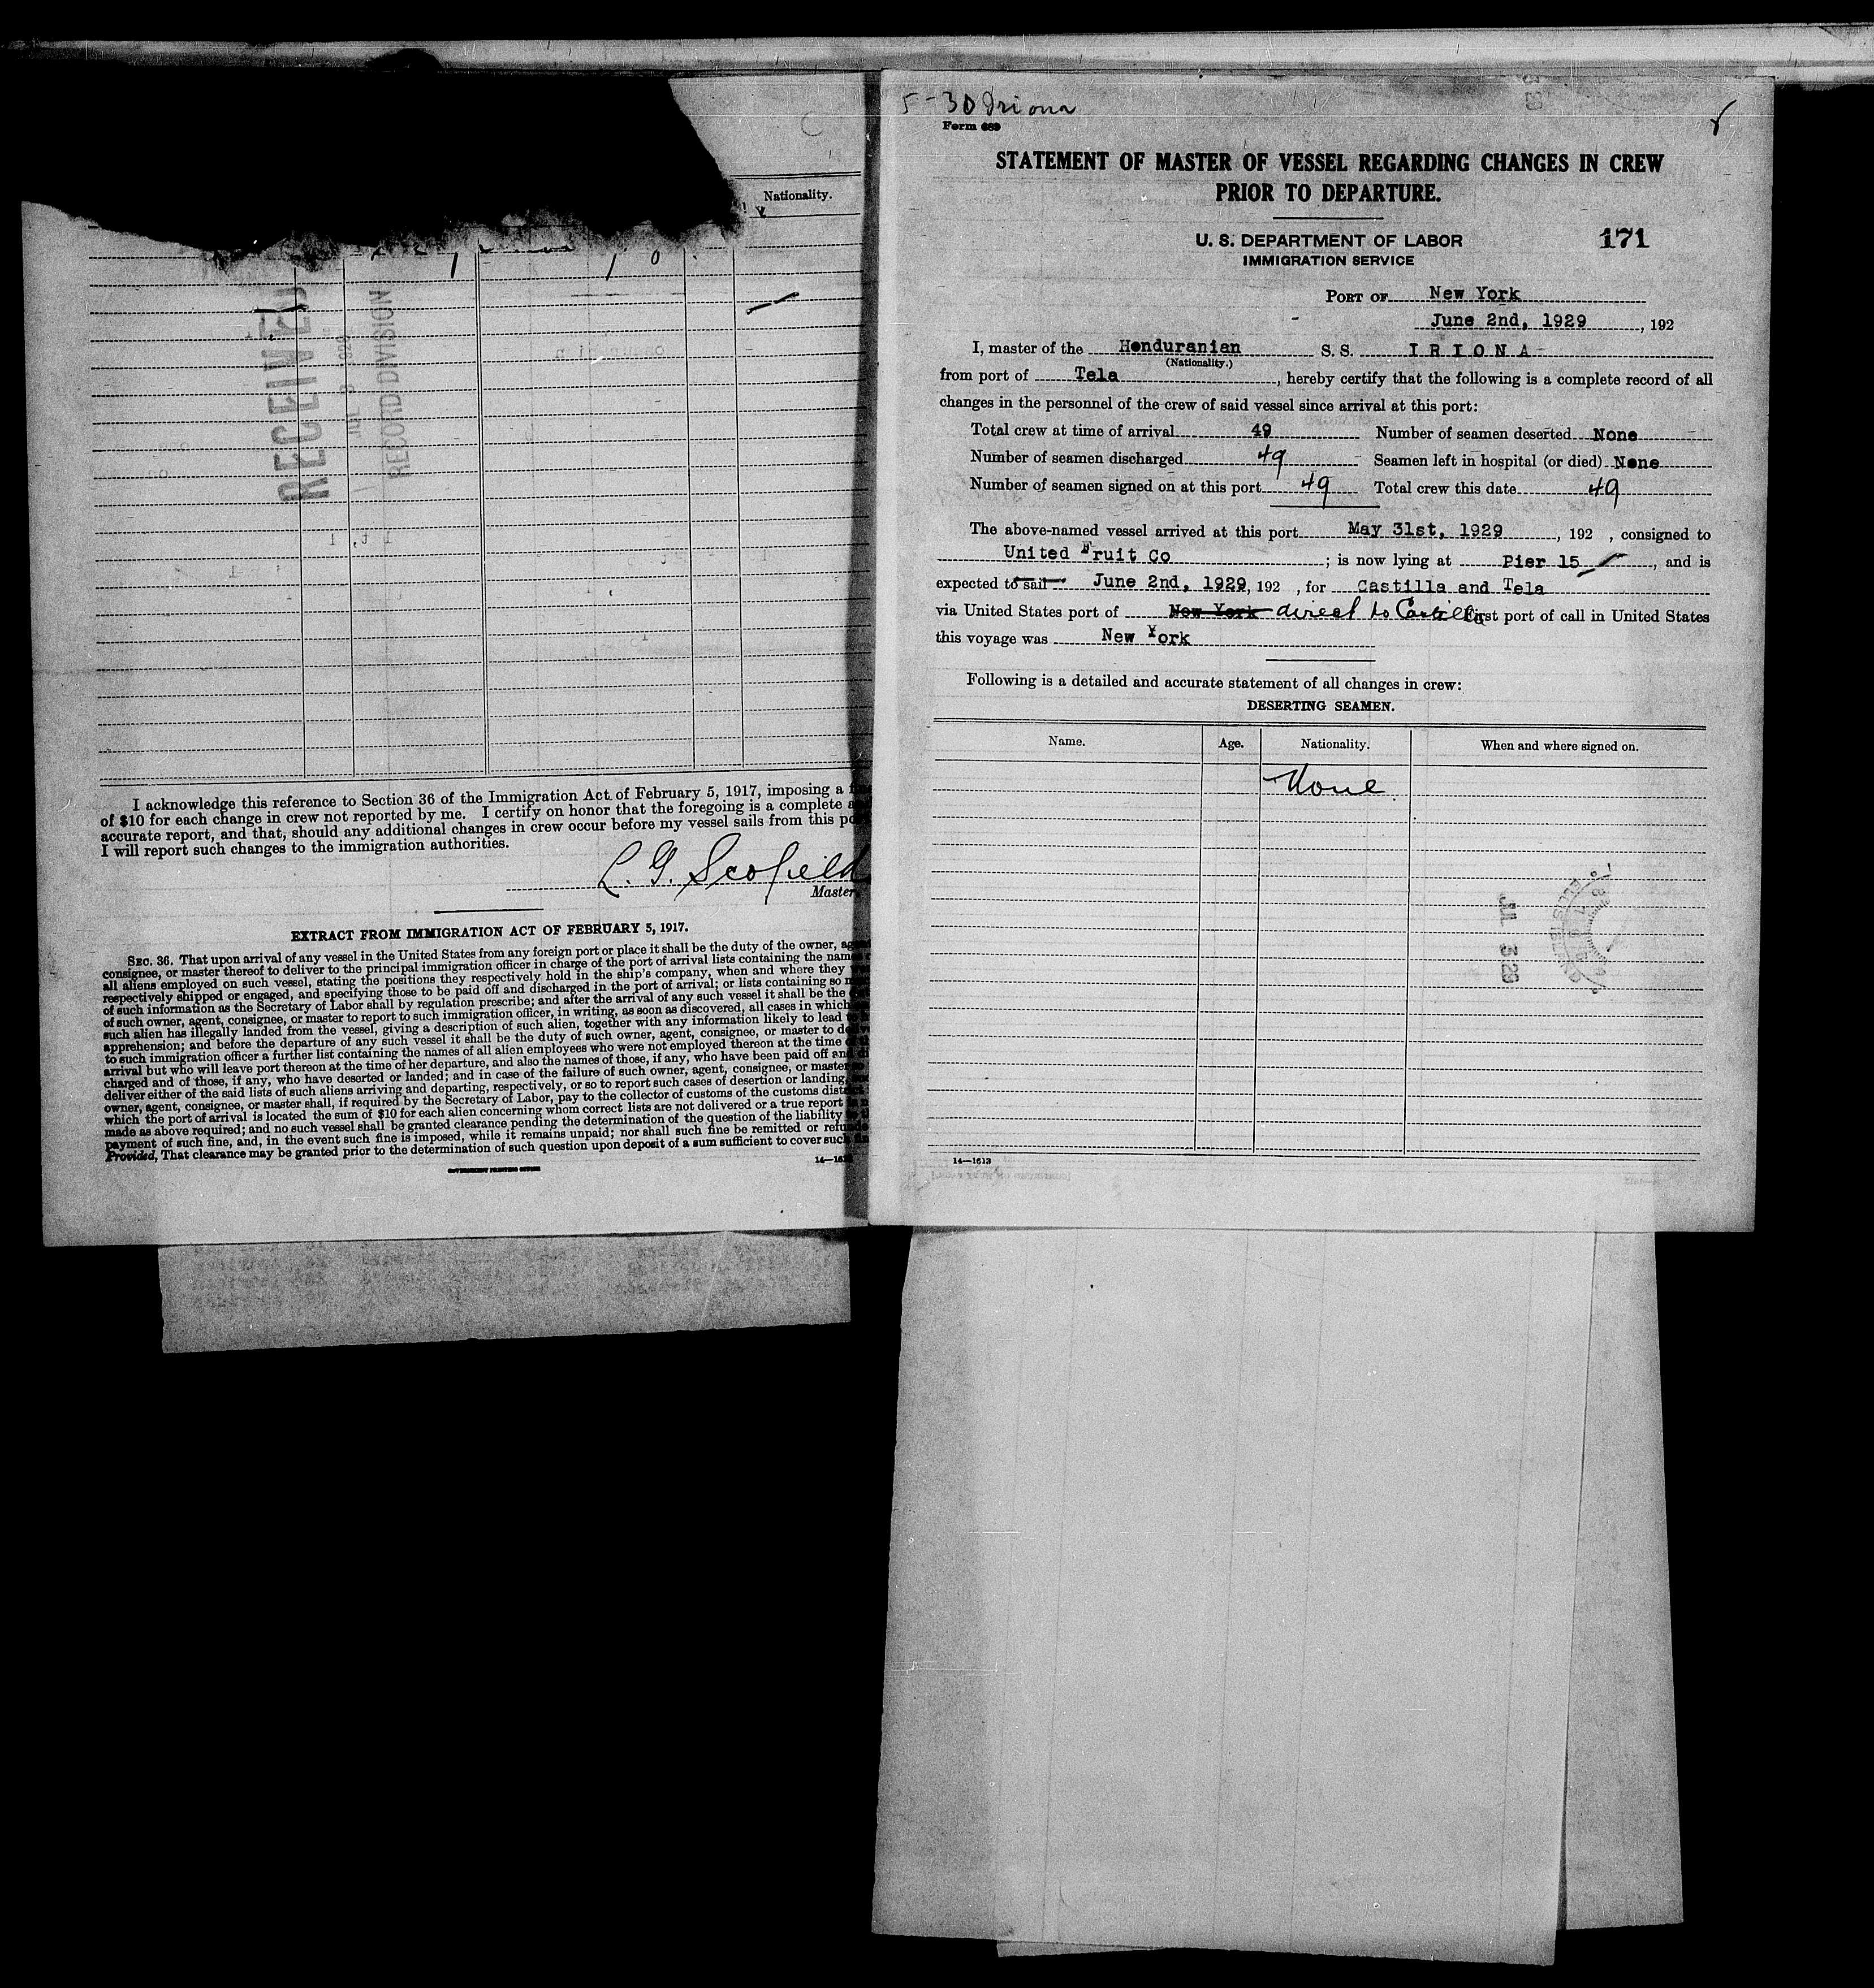 Nationality.
RECEIVED
RECORD DIVISION
I acknowledge this reference to Section 36 of the Immigration Act of February 5, 1917, imposing a
of $10 for each change in crew not reported by me. I certify on honor that the foregoing is a complete
accurate report, and that, should any additional changes in crew occur before my vessel sails from this
I will report such changes to the immigration authorities.
L. G. Scofield
Master
EXTRACT FROM IMMIGRATION ACT OF FEBRUARY 5, 1917.
SEC. 36. That upon arrival of any vessel in the United States from any foreign port or place it shall be the duty of the owner,
consignee, or master thereof to deliver to the principal immigration officer in charge of the port of arrival lists containing the names
all aliens employed on such vessel, stating the positions they respectively hold in the ship's company, when and where they
respectively shipped or engaged, and specifying those to be paid off and discharged in the port of arrival; or lists containing so
of such information as the Secretary of Labor shall by regulation prescribe; and after the arrival of any such vessel it shall be the
of such owner, agent, consignee, or master to report to such immigration officer, in writing, as soon as discovered, all cases in which
such alien has illegally landed from the vessel, giving a description of such alien, together with any information likely to lead
apprehension; and before the departure of any such vessel it shall be the duty of such owner, agent, consignee, or master to
to such immigration officer a further list containing the names of all alien employees who were not employed thereon at the time
arrival but who will leave port thereon at the time of her departure, and also the names of those, if any, who have been paid off and
charged and of those, if any, who have deserted or landed; and in case of the failure of such owner, agent, consignee, or master
deliver either of the said lists of such aliens arriving and departing, respectively, or so to report such cases of desertion or landing,
owner, agent, consignee, or master shall, if required by the Secretary of Labor, pay to the collector of customs of the customs
which the port of arrival is located the sum of $10 for each alien concerning whom correct lists are not delivered or a true report
made as above required; and no such vessel shall be granted clearance pending the determination of the question of the liability
payment of such fine, and, in the event such fine is imposed, while it remains unpaid; nor shall such fine be remitted or
Provided, That clearance may be granted prior to the determination of such question upon deposit of a sum sufficient to cover such
GOVERNMENT PRINTING OFFICE
5-30 Iriona
Form 689
STATEMENT OF MASTER OF VESSEL REGARDING CHANGES IN CREW
PRIOR TO DEPARTURE.
U. S. DEPARTMENT OF LABOR
IMMIGRATION SERVICE
171
PORT OF New York
June 2nd, 1929, 192
I, master of the Honduranian S. S. IRIONA
(Nationality.)
from port of Tela, hereby certify that the following is a complete record of all
changes in the personnel of the crew of said vessel since arrival at this port:
Total crew at time of arrival 49 Number of seamen deserted None
Number of seamen discharged 49 Seamen left in hospital (or died) None
Number of seamen signed on at this port 49 Total crew this date 49
The above-named vessel arrived at this port May 31st, 1929, 192 , consigned to
United Fruit Co; is now lying at Pier 15, and is
expected to sail June 2nd, 1929, 192 , for Castilla and Tela
via United States port of New York direct to Castilla First port of call in United States
this voyage was New York
Following is a detailed and accurate statement of all changes in crew:
DESERTING SEAMEN.
Name. Age. Nationality. When and where signed on.
None
JUL 3 29
14—1613